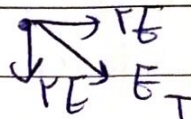 PE
PE E T